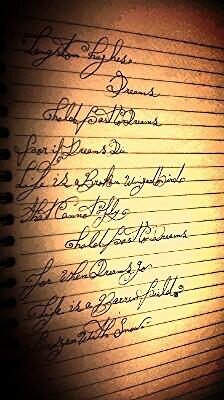 Langston Hughes
Dreams
Hold fast to Dreams
For if Dreams Die
Life is a Broken Winged Bird
That Cannot fly
Hold fast to Dreams
For When Dreams Go
Life is a Barren field
Frozen With Snow